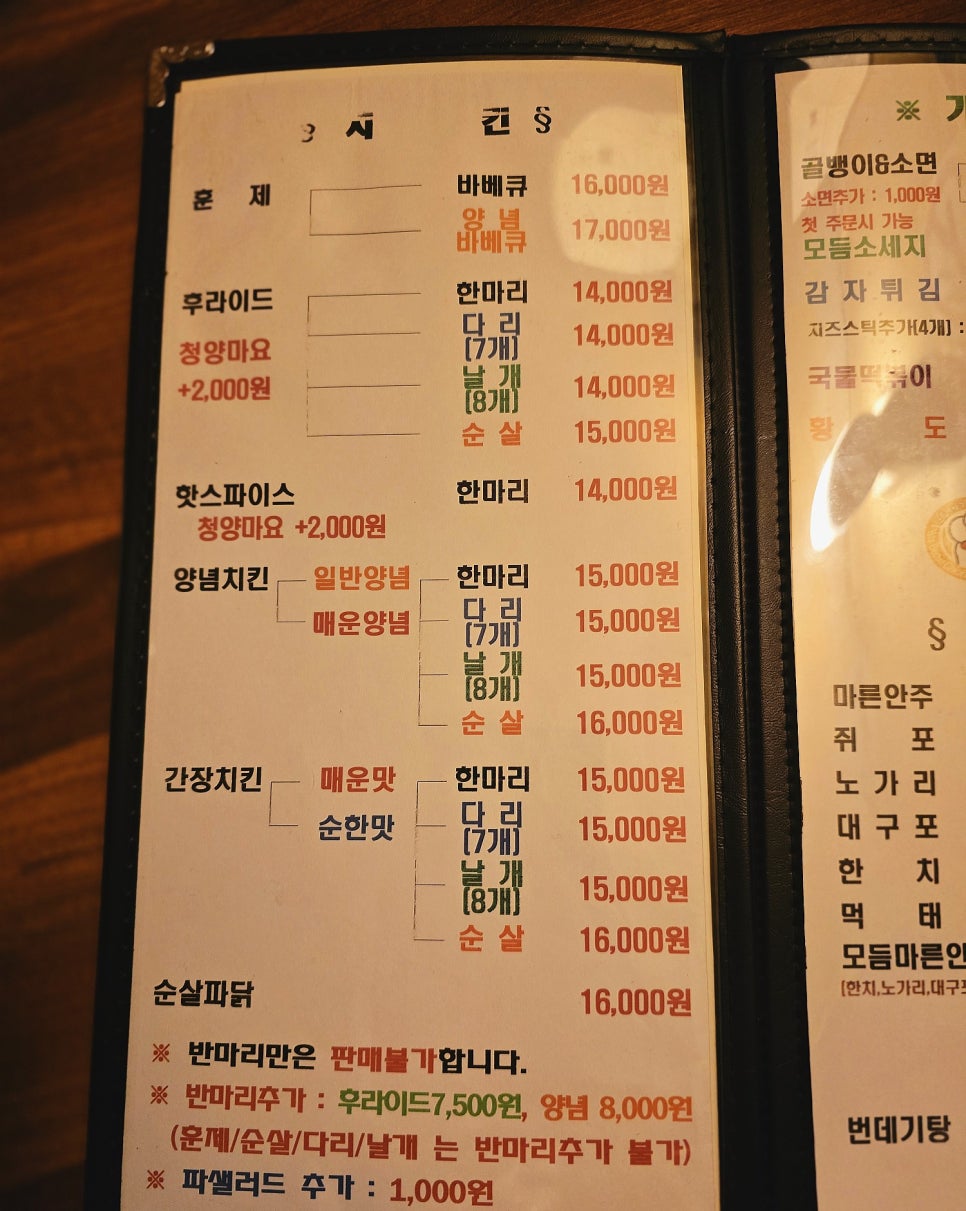 § 치 킨 §
훈 제 바베큐 16,000원
양 념 바베큐 17,000원
후라이드 한마리 14,000원
다 리 (7개) 14,000원
청양마요 +2,000원
날 개 (8개) 14,000원
순 살 15,000원
핫스파이스 한마리 14,000원
청양마요 +2,000원
양념치킨 일반양념 한마리 15,000원
매운양념 다 리 (7개) 15,000원
날 개 (8개) 15,000원
순 살 16,000원
간장치킨 매운맛 한마리 15,000원
순한맛 다 리 (7개) 15,000원
날 개 (8개) 15,000원
순 살 16,000원
순살파닭 16,000원
※ 반마리만은 판매불가합니다.
※ 반마리추가 : 후라이드7,500원, 양념 8,000원
(훈제/순살/다리/날개 는 반마리추가 불가)
※ 파샐러드 추가 : 1,000원
※
골뱅이&소면
소면추가 : 1,000원
첫 주문시 가능
모듬소세지
감 자 튀 김
치즈스틱추가(4개) :
국물떡볶이
황 도
§
마른안주
쥐 포
노 가 리
대 구 포
한 치
먹 태
모듬마른안
(한치,노가리,대구포
번데기탕